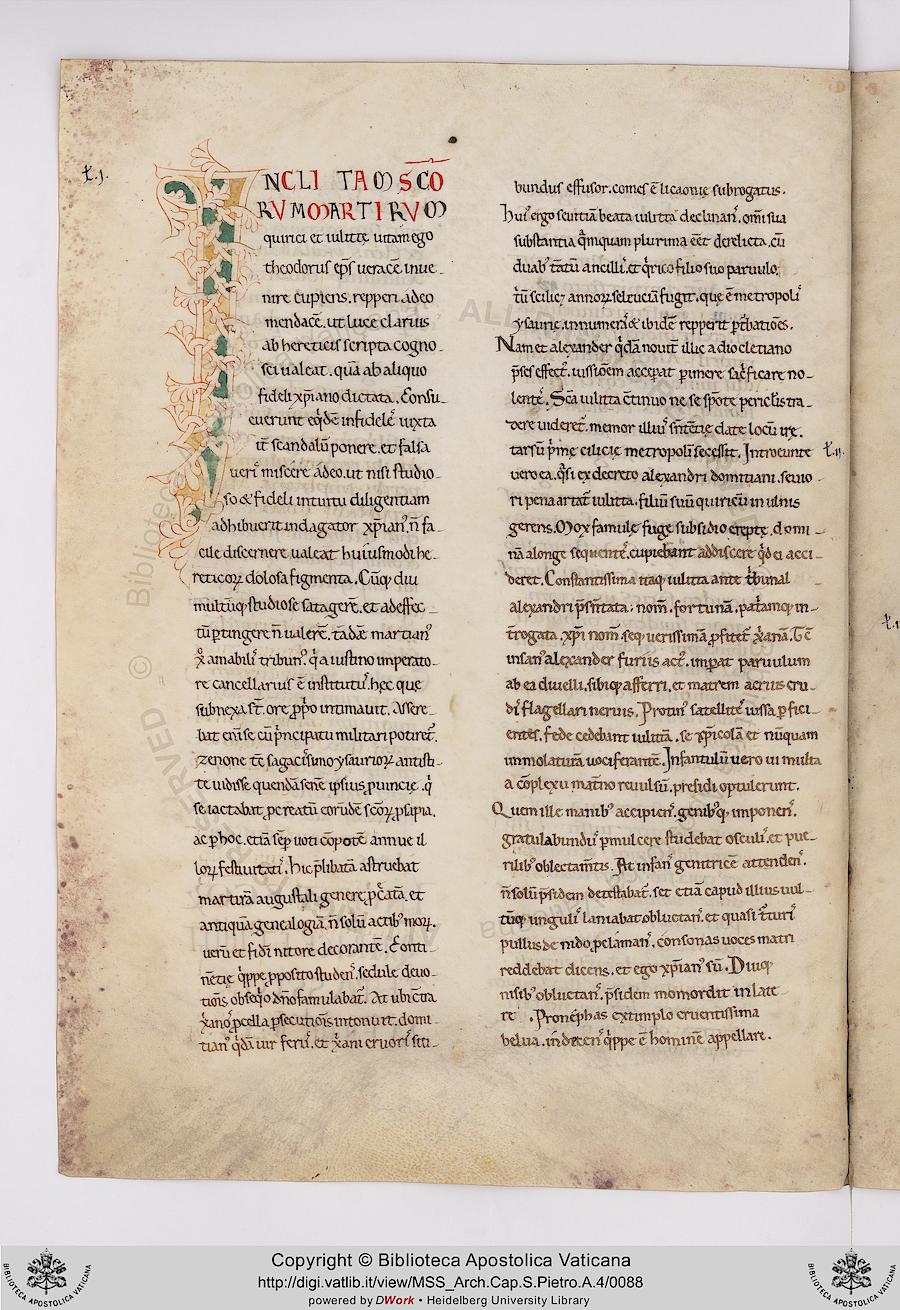 ł.j.
INCLITAM SCO
RVM MARTIRVM
quirici et iulitte uitam ego
theodorus ep̄s ueracē inue
nire cupiens. repperi adeo
mendacē. ut luce clarius
ab hereticis scripta cogno
sci ualeat. quā ab aliquo
fideli xp̄iano dictata. Consu
euerunt eq̄dē infideleſ iuxta
ueriſ miscere adeo. ut nisi studio
so & fideli intuitu diligentiam
adhibuerit indagator xp̄ianꝰ. n̄ fa
cile discernere ualeat huiusmodi he
reticoꝝ dolosa figmenta. Cūq diu
multūq studiose satagerē. et ad effec
tū ꝑtingere n̄ valerē. tādē martianꝰ
re cancellarius ē institutuſ. hęc que
subnexa sī. ore ꝓp̄o intimauit. Assere
bat eni se cū p̄ncipatu militari potiret᷑.
zenone tē sagacissimo ysaurioꝝ antisti
te uidisse quendā senē ipsius ꝓuincię. q̄
se iactabat, ꝓ creatū eorūdē scōꝝ ꝓsapia.
ac ꝑ hoc. etiā sēp uoti cōpotē annue il
loꝝ festiuitati. Hic p̄libatā astruebat
martirā augustali genere ꝓcreatā. et
antiquā genealogiā. n̄ solū actibꝰ moꝝ.
uerū et fidei nitore decorantē. Conti
nētię q̄ppe ꝓposito studenſ. sedule deuo
tioīs obseq̄o dn̄o famulabat᷑. At ubi cūta
xānoſ ꝓcella ꝑsecutioīs intonuit. domi
tianꝰ q̄dā uir feruſ. et xāni cruoriſ siti
bundus effusor. comes ē licaonię subrogatus.
Huiꝰ ergo seuitiā beata iulitta declinanſ. omī sua
substantia q̄mquam plurima eēt derelicta. cū
duabꝰ tātū ancilliſ. et q̄rico filio suo paruulo.
ysaurię. innumeraſ & ibidē repperit ꝑt̄bationes.
Nam et alexander q̄dā nouit illic a diocletiano
p̄ses effectꝰ. iussionem acceperat punere sac̄ficare no
lenteſ. Sc̄a iulitta c̄tinuo ne se spōte periclis tra
dere uideret᷑. memor illiuſ sn̄tētię date locū irę.
tarsū p̄mę cilicię metropolī secessit. Introeunte
ł.ij.
uero ea. q̄si ex decreto alexandri domitiani. seuio
ri pena artat᷑ iulitta. filiū suū quiricū in ulnis
gerens. Mox famulę fuge subsidio ereptę. domi
nā a longe sequenteſ. cupiebant addiscere q̄d ei acci
deret. Constantissima itaq iulitta ante t̄bunal
alexandri p̄sn̄tata. nom̄. fortunā. patriamq in
t̄rogata. xp̄i nom̄. seq uerissimā ꝓfitet᷑ x̄anā. Tc̄
insanꝰ alexander furiis actꝰ. impat paruulum
ab ea diuelli. sibiq afferri. et matrem acrius cru
diſ flagellari neruis. Protinꝰ satelliteſ iussa ꝑfici
entes. fede cedebant iulittā. se xp̄icolā et nūquam
immolaturā uociferantē. Infantulū uero ui multa
a cōplexu mat̄no reuulsū. presidi optulerunt.
Quem ille manibꝰ accipienſ. genibꝰq imponenſ.
gratulabunduſ ꝑmulcere studebat osculiſ. et pue
rilibꝰ oblectam̄tis. At infanſ genitricē attendenſ.
n̄ solū p̄sidem detestabat᷑. set etiā capud illius uul
tūq unguliſ laniabat obluctanſ. et quasi turturiſ
pullus de nido ꝓclamanſ. consonas uoces matri
reddebat dicens. et ego xp̄ianꝰ sū. Diuq
nisibꝰ obluctanſ. p̄sidem momordit in late
re. Pro nephas extimplo cruentissima
belua. indecenſ q̄ppe ē hominē appellare.
© Biblioteca
RESERVED
ALL
Copyright © Biblioteca Apostolica Vaticana
http://digi.vatlib.it/view/MSS_Arch.Cap.S.Pietro.A.4/0088
powered by DWork • Heidelberg University Library
BIBLIOTECA APOSTOLICA VATICANA
BIBLIOTECA APOSTOLICA VATICANA